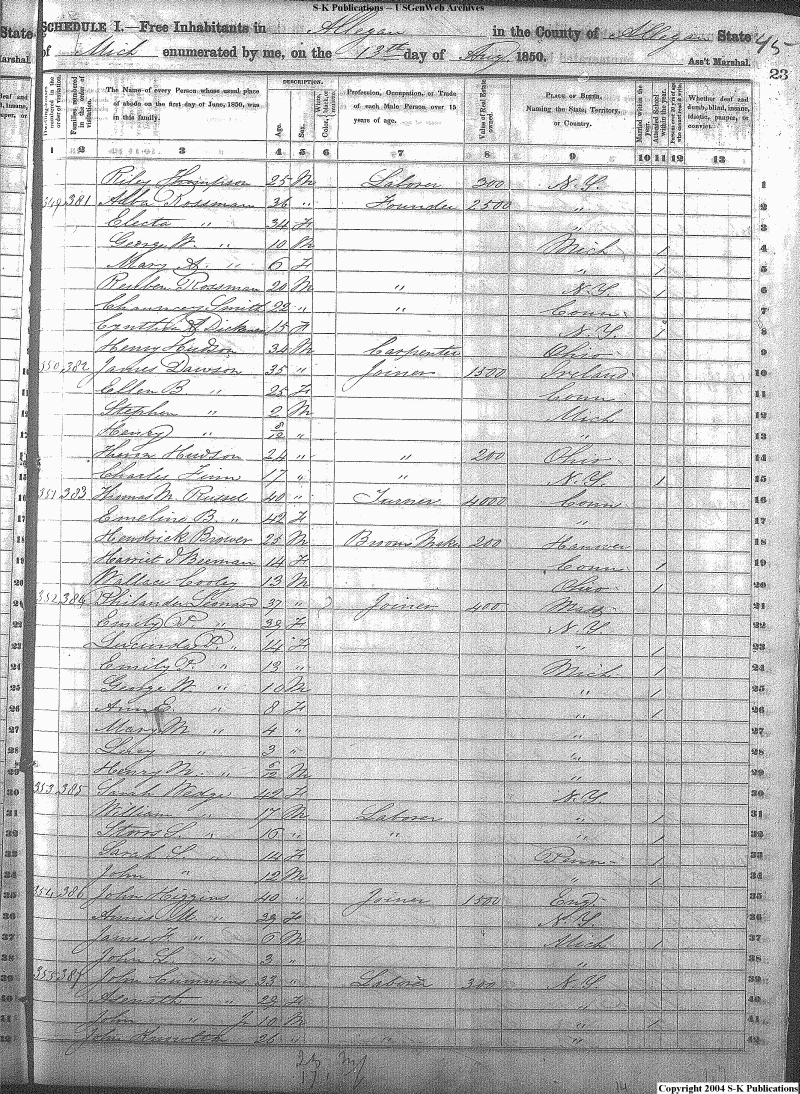 S-K Publications – USGenWeb Archives
SCHEDULE I.—Free Inhabitants in Allegan in the County of Allegan State 45
of Mich enumerated by me, on the 13th day of Aug 1850. Ass't Marshal. 23
DESCRIPTION.
The Name of every Person whose usual place of abode on the first day of June, 1850, was in this family. Age. Sex. Profession, Occupation, or Trade of each Male Person over 15 years of age. Value of Real Estate owned. PLACE OF BIRTH, Naming the State, Territory, or Country. Married within the year. Attended School within the year. Whether deaf and dumb, blind, insane, idiotic, pauper, or convict.
1 2 3 4 5 6 7 8 9 10 11 12 13
Riley Thompson 25 M Laborer 300 N.Y. 1
349 381 Adba Rossman 36 " Founder 2500 " 2
Electa " 34 F " 3
George W. " 10 M Mich 1 4
Mary A. " 6 F " 1 5
Reuben Rossman 20 M " N.Y. 1 6
Chauncey Smith 22 " " Conn 7
Cynthia A 15 F N.Y. 1 8
Henry Hudson 34 M Carpenter Ohio 9
350 382 James Dawson 35 " Joiner 1500 Ireland 10
Ellen B. " 25 F Conn 11
Stephen " 2 M Mich 12
Henry " 8/12 " " 13
Hiram Hudson 24 " " 200 Ohio 14
Charles Finn 17 " " N.Y. 1 15
351 383 Thomas M. Russel 40 " Turner 4000 Conn 16
Emeline B. " 42 F " 17
Hendrick Brower 25 M Broom Make 200 Hanover 18
Harriet J Beeman 14 F Conn 1 19
Wallace Cooley 13 M Ohio 1 20
352 384 Philander Leonard 37 " Joiner 400 Mass 21
Emily P. " 32 F N.Y. 22
Lucinda P. " 14 F " 1 23
Emily P. " 13 " Mich 1 24
George W. " 10 M " 1 25
Ann E. " 8 F " 1 26
Mary M " 4 " " 27
Lucy " 3 " " 28
Henry M. " 6/12 M " 29
353 385 Sarah Wedge 42 F N.Y. 30
William " 17 M Laborer " 1 31
Storrs S. " 16 " " " 1 32
Sarah L. " 14 F Penn 1 33
John " 12 M " 1 34
354 386 John Higgins 40 " Joiner 1500 Eng. 35
M. " 32 F N.Y. 36
James H. " 6 M Mich 1 37
John L. " 3 " " 38
355 387 John Cummins 33 " Laborer 300 N.Y. 39
Asenath " 29 F " 40
John " Jr 10 M " 1 41
John 26 " " " 42
Copyright 2004 S-K Publications